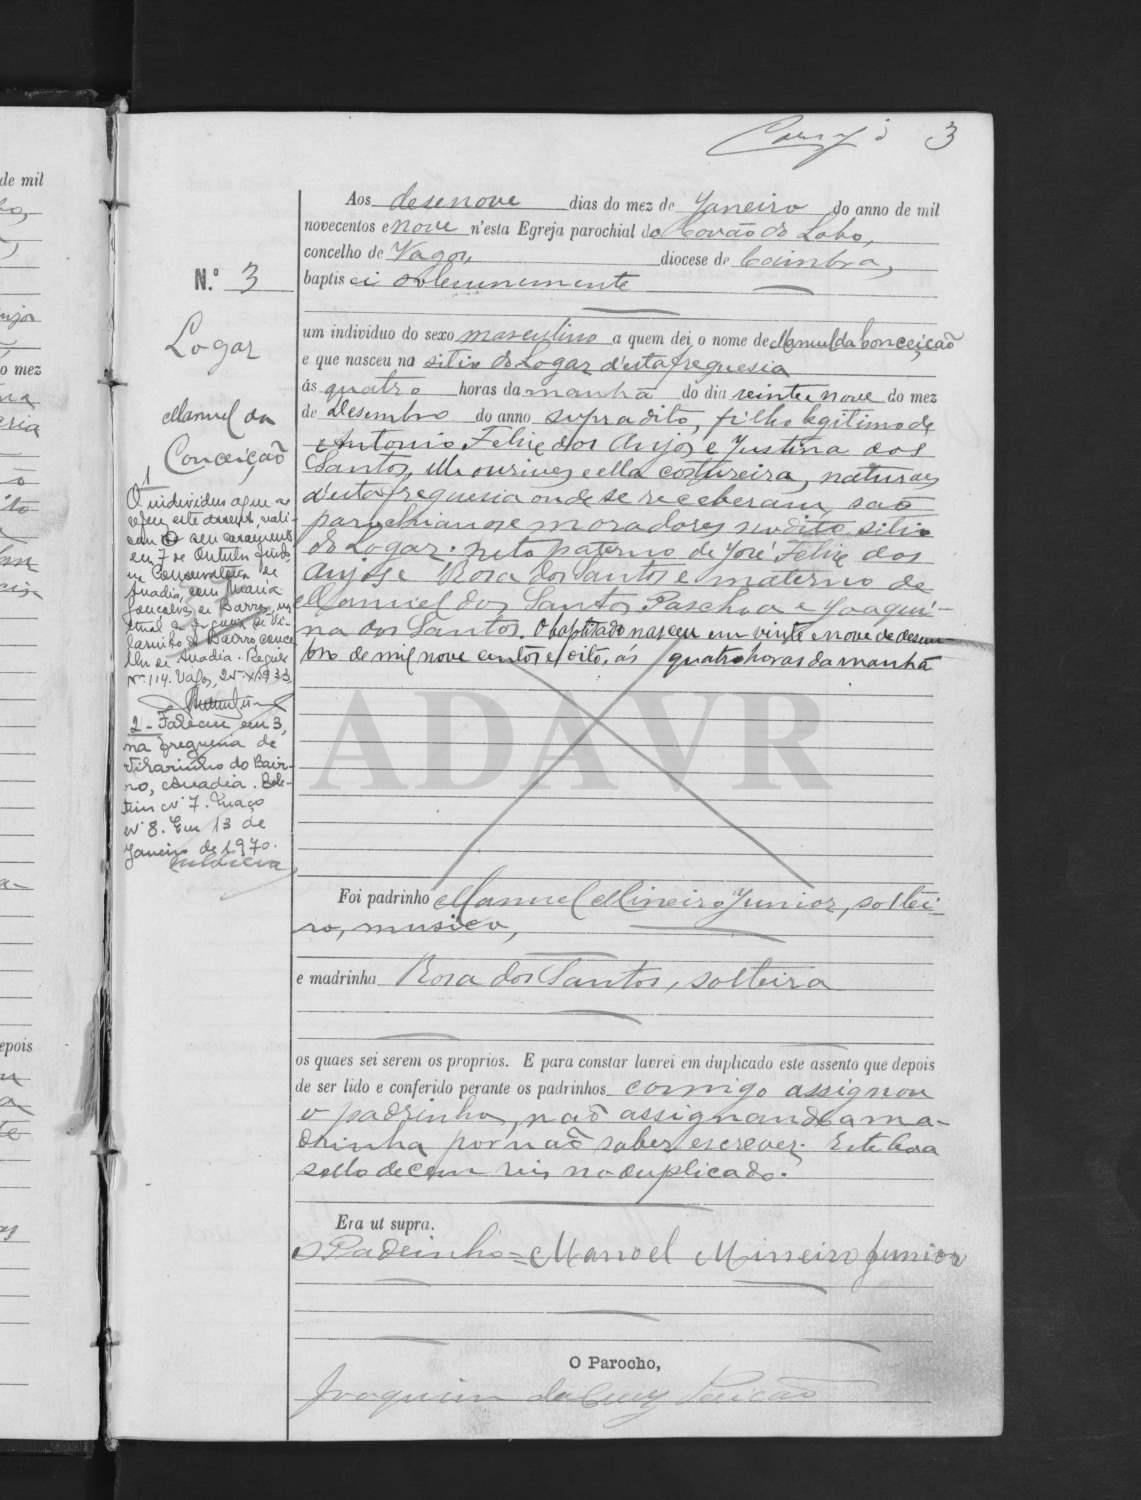 3
Aos desenove dias do mez de Janeiro do anno de mil
novecentos e nove n'esta Egreja parochial do Covão do Lobo,
concelho de Vagos, diocese de Coimbra,
baptisei solemnemente
N.º 3
Logar
Manuel da
Conceição
um individuo do sexo masculino a quem dei o nome de Manuel da Conceição
e que nasceu na sitio do Logar d'esta freguesia
ás quatro horas da manhã do dia vinte e nove do mez
de Desembro do anno supradito, filho legitimo de
Antonio Felix dos Anjos e Justina dos
Santos, elle ourives e ella costureira, naturaes
d'esta freguesia onde se receberam, são
parochianos e moradores no dito sitio
do Logar. Neto paterno de José Felix dos
Anjos e Rosa dos Santos e materno de
Manuel dos Santos Paschoa e Joaqui-
na dos Santos. O baptisado nasceu em vinte e nove de desem-
bro de mil nove centos e oito, ás quatro horas da manhã
1
O individuo a que se
refere este assento, reali-
sou o seu casamento
em 7 de Outubro findo,
na Conservatoria de
Anadia, com Maria
Gonçalves de Barros, na
tural da freguezia de Vi-
larinho do Bairro, conce
lho de Anadia.
Nº 114. Vagos,
2 - Faleceu em 3,
na freguesia de
Vilarinho do Bair-
ro, Anadia. Bole-
tim Nº 7. Maço
Nº 8. Em 13 de
Janeiro de 1970.
ADAVR
Foi padrinho Manuel Mineiro Junior, soltei-
ro, musico,
e madrinha Rosa dos Santos, solteira
os quaes sei serem os proprios. E para constar lavrei em duplicado este assento que depois
de ser lido e conferido perante os padrinhos comigo assignou
o padrinho, não assignando a ma-
drinha por não saber escrever. Este leva
sello de cem reis no duplicado.
Era ut supra.
O Padrinho = Manoel Mineiro Junior
O Parocho,
Joaquim da Cruz